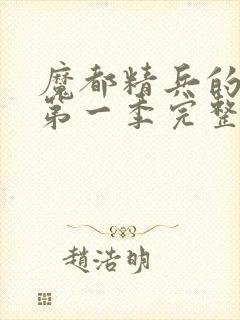 魔都精兵的
第一季完整
趙浩明